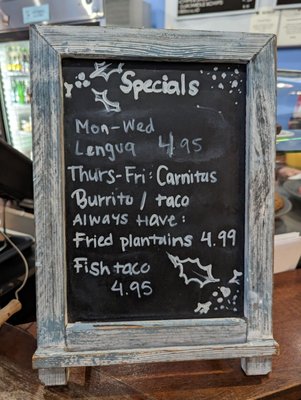 Specials
Mon-Wed
Lengua 4.95
Thurs-Fri: Carnitas
Burrito / taco
Always Have:
Fried plantains 4.99
Fish taco
4.95